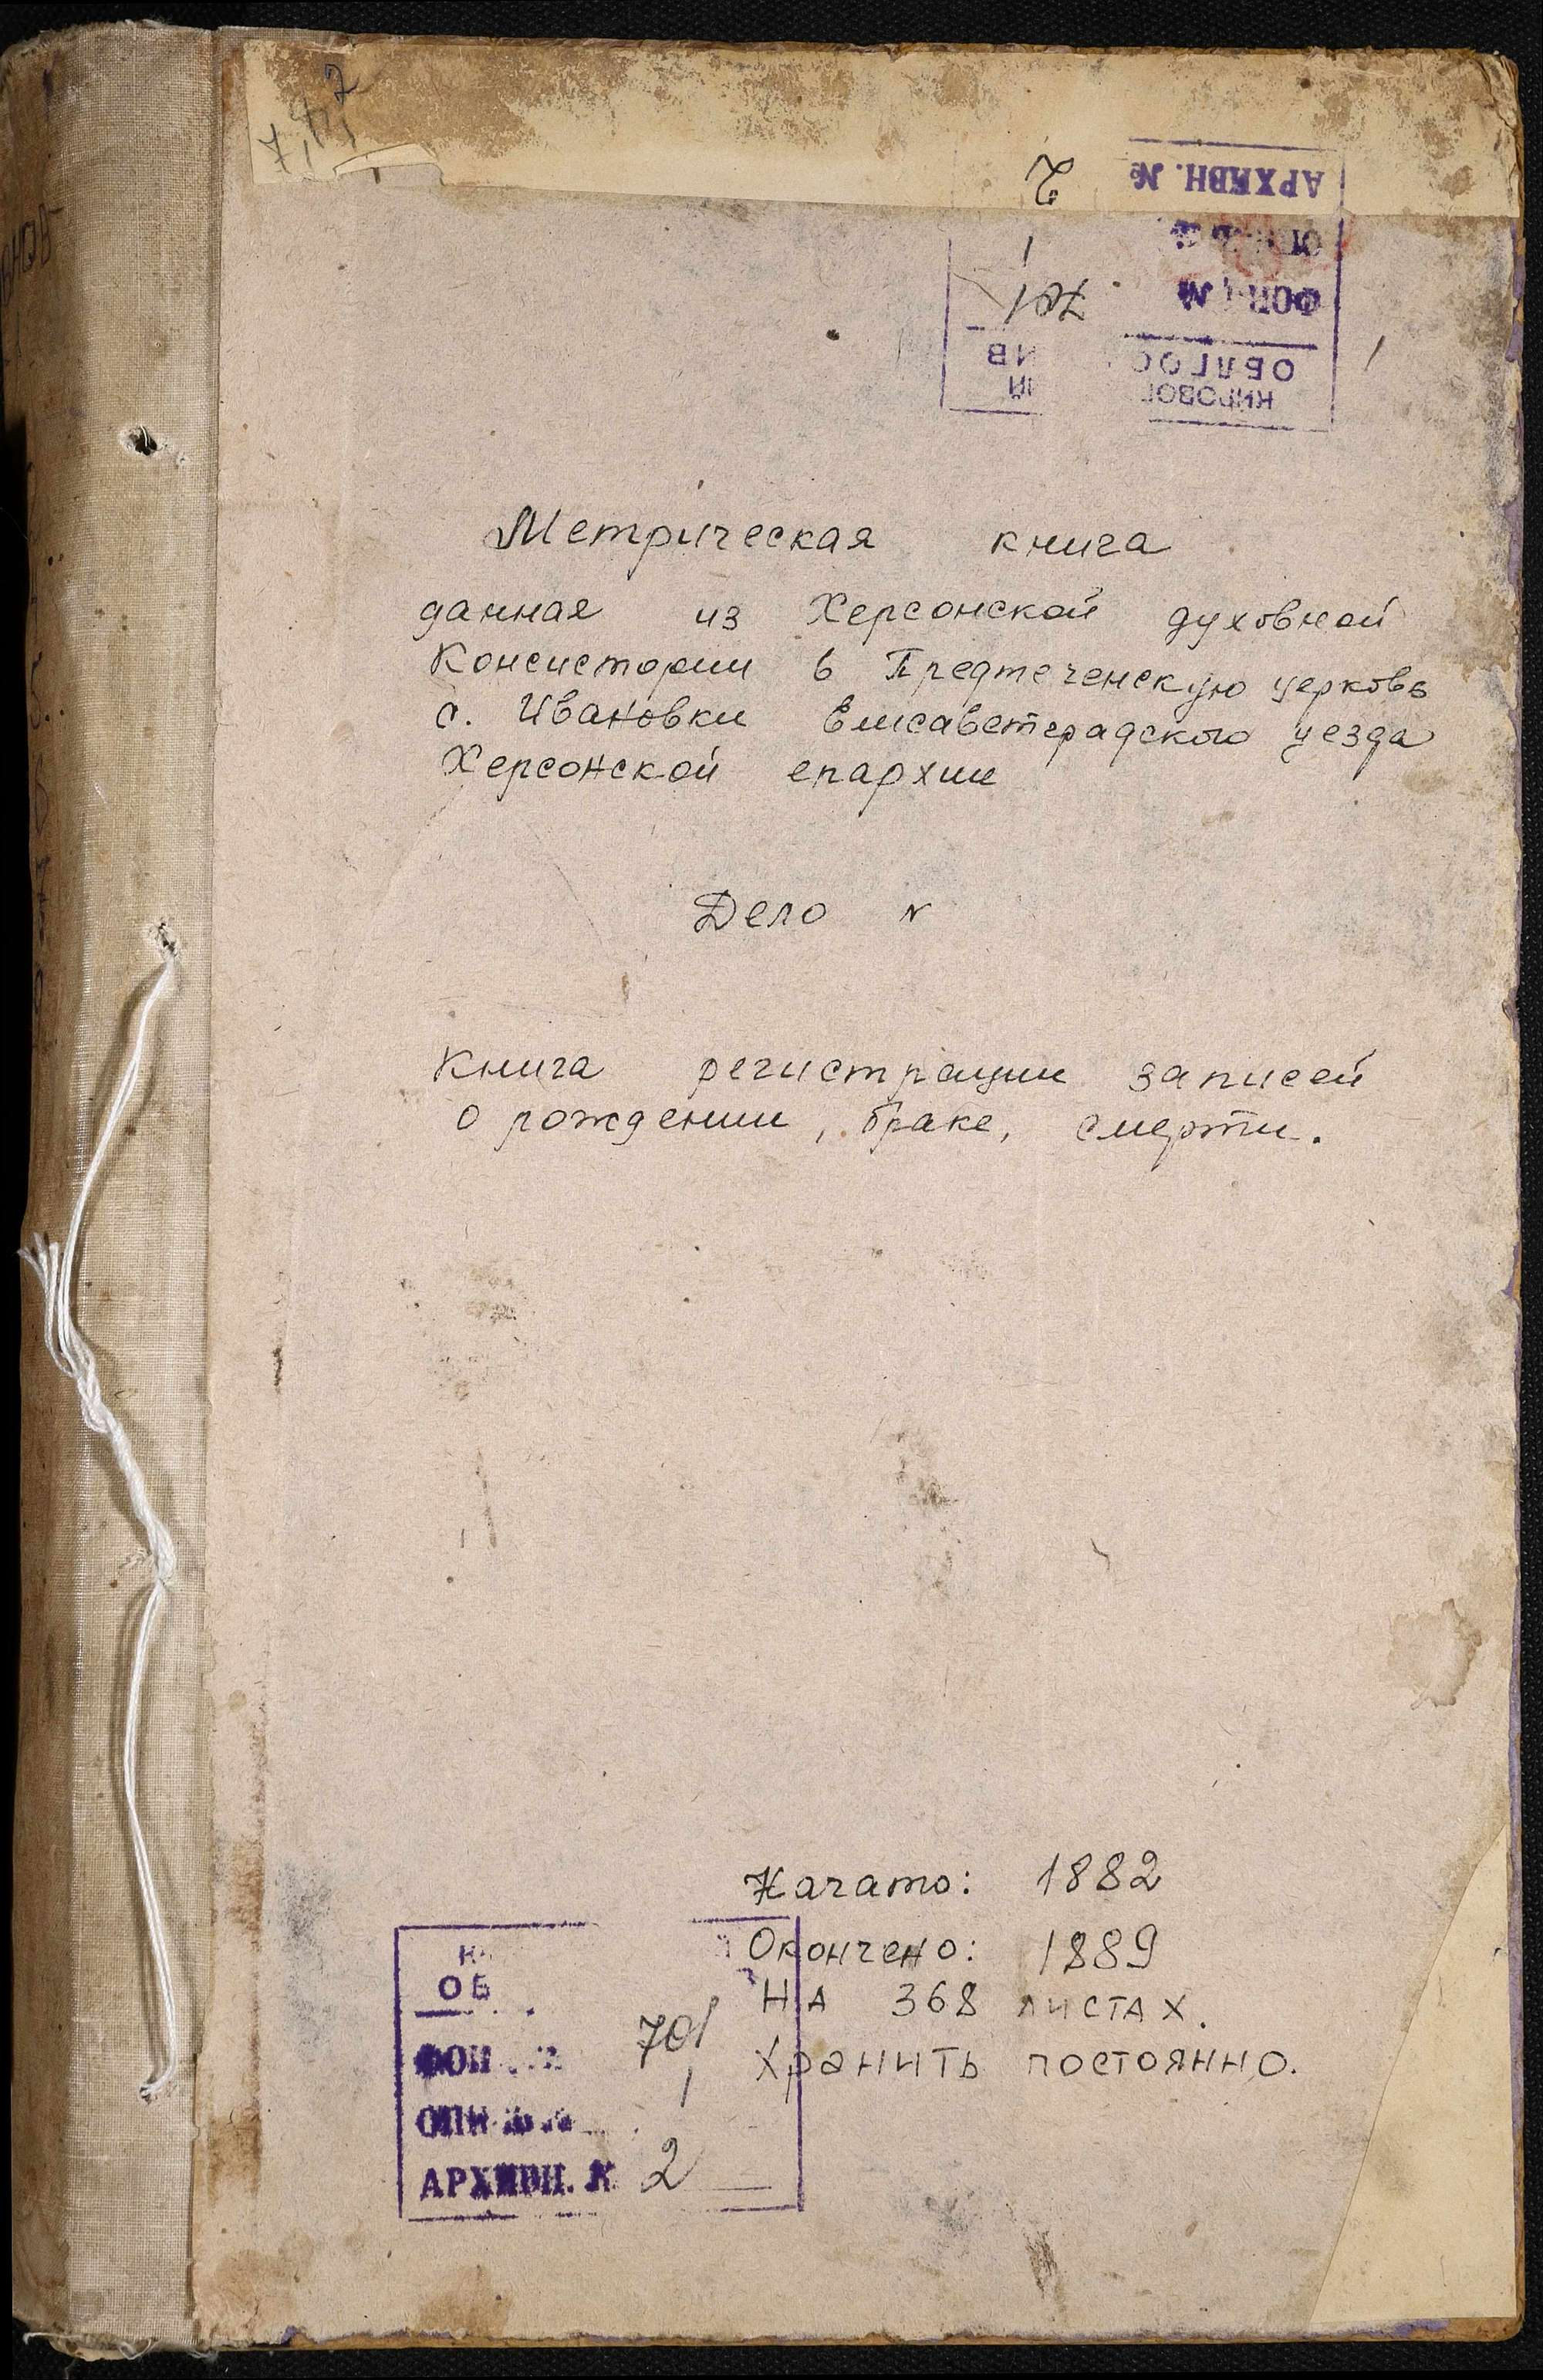 2
АРХИВН. №
1
701
ФОНД №
ИВ
ОБЛГОС
ИЙ
КИРОВОГ
Метрическая книга
данная из Херсонской духовной
Консистории в Предтеченскую церковь
с. Ивановки Елисаветградского уезда
Херсонской епархии
Дело №
Книга регистрации записей
о рождении, браке, смерти.
Начато: 1882
Окончено: 1889
НА 368 листах.
Хранить постоянно.
ОБ
ФОН 701
1
АРХИВН. № 2